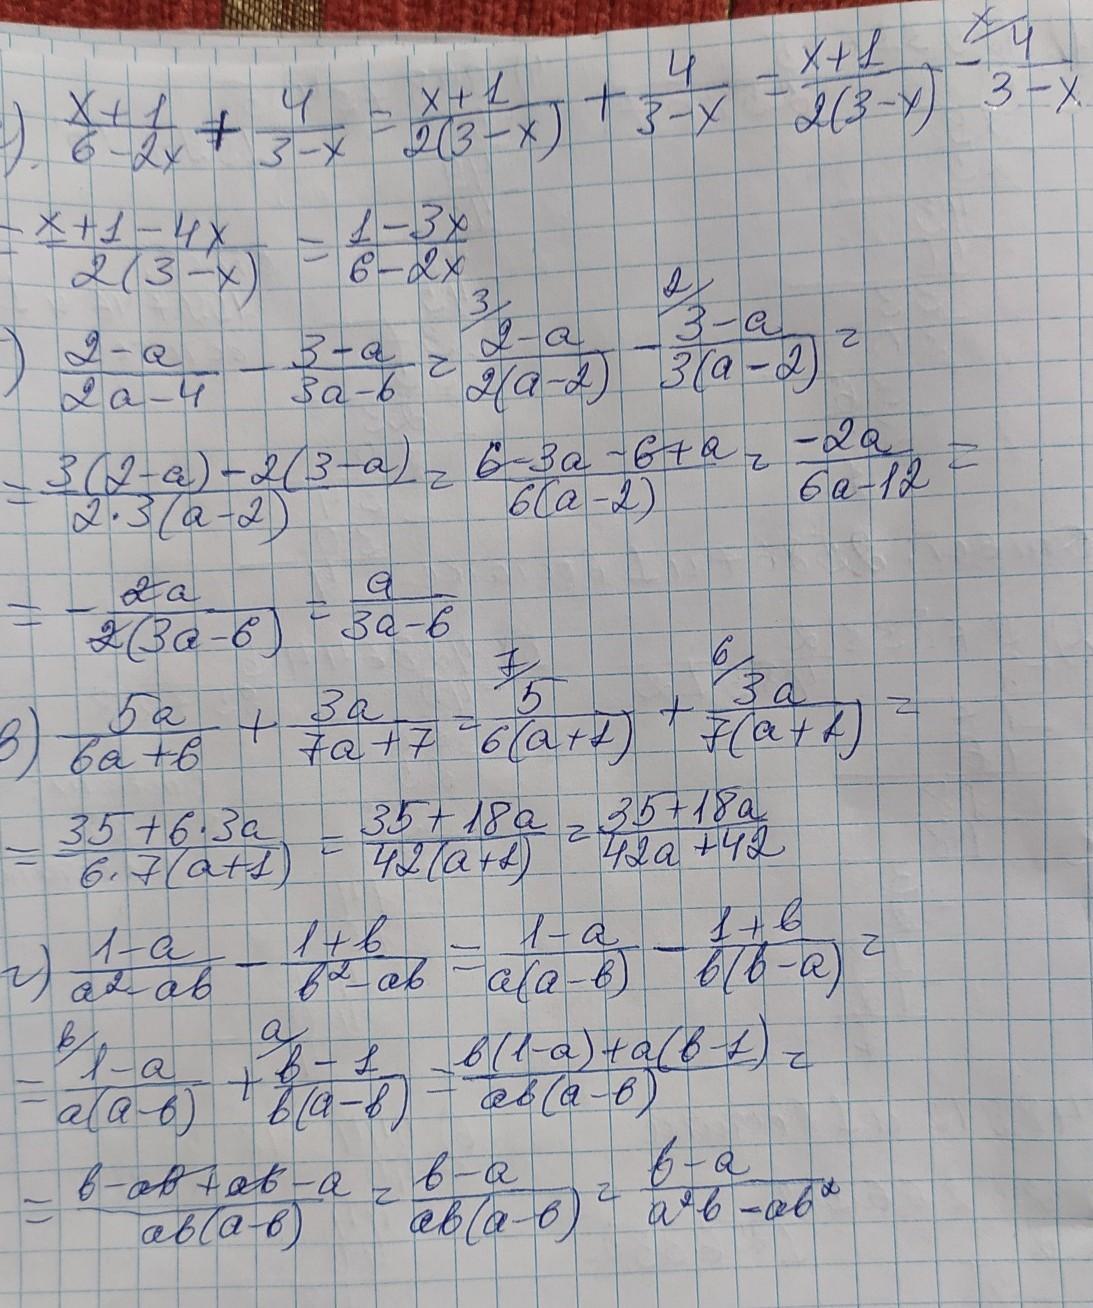 ). x+1/6-2x + 4/3-x = x+1/2(3-x) + 4/3-x = x+1/2(3-x) - x/ 4/3-x
= x+1-4x/2(3-x) = 1-3x/6-2x
) 2-a/2a-4 - 3-a/3a-6 = 3/ 2-a/2(a-2) - 2/ 3-a/3(a-2) =
= 3(2-a)-2(3-a)/2·3(a-2) = 6-3a-6+a/6(a-2) = -2a/6a-12 =
= - 2a/2(3a-6) = a/3a-6
в) 5a/6a+6 + 3a/7a+7 = 7/ 5/6(a+1) + 6/ 3a/7(a+1) =
= 35+6·3a/6·7(a+1) = 35+18a/42(a+1) = 35+18a/42a+42
г) 1-a/a²-ab - 1+в/в²-ав = 1-a/a(a-в) - 1+в/в(в-a) =
= в/ 1-a/a(a-в) + a/ в-1/в(a-в) = в(1-a)+a(в-1)/aв(a-в) =
= в-aв+aв-a/aв(a-в) = в-a/aв(a-в) = в-a/a²в-aв²